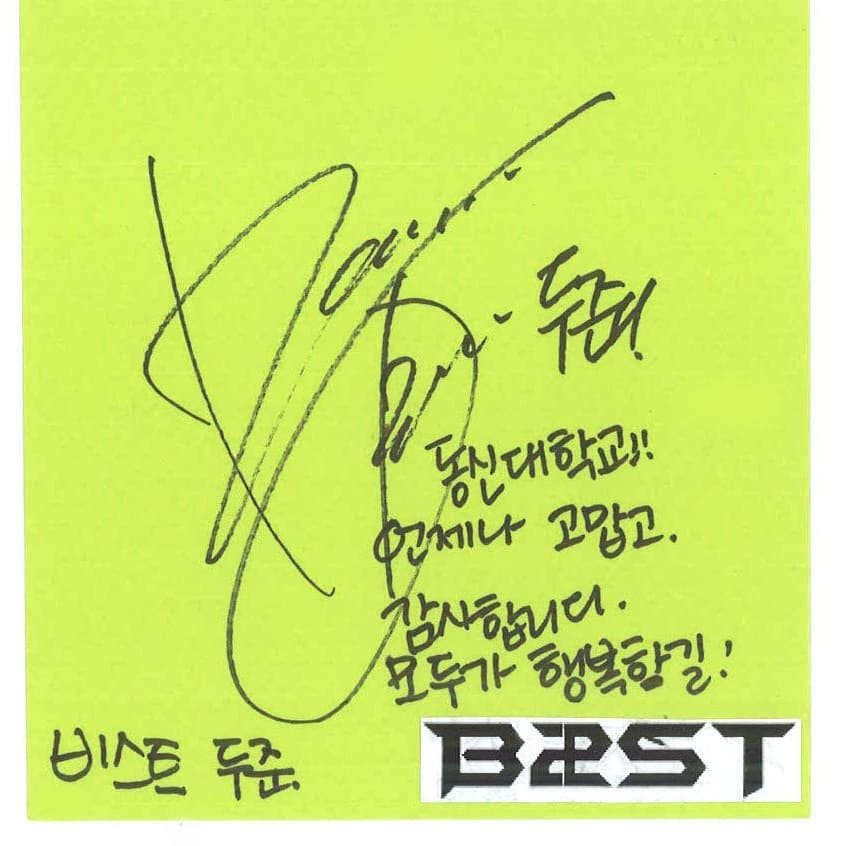 두준!
동신대학교!!
언제나 고맙고.
감사합니다.
모두가 행복함길!
비스트 두준.
B2ST